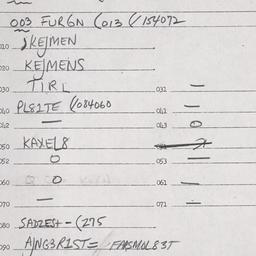 003 FURGN (013 (/154072
010 )KEJMEN
020 KEJMENS
030 TIRL 031 —
040 PL81TE (/084060 041 —
042 — 043 0
050 KAXEL8
052 0 053 —
060 0 061 —
070 — 071 —
080 SADZES+-(275
090 A/NG3R1ST= FAMSMOL83T